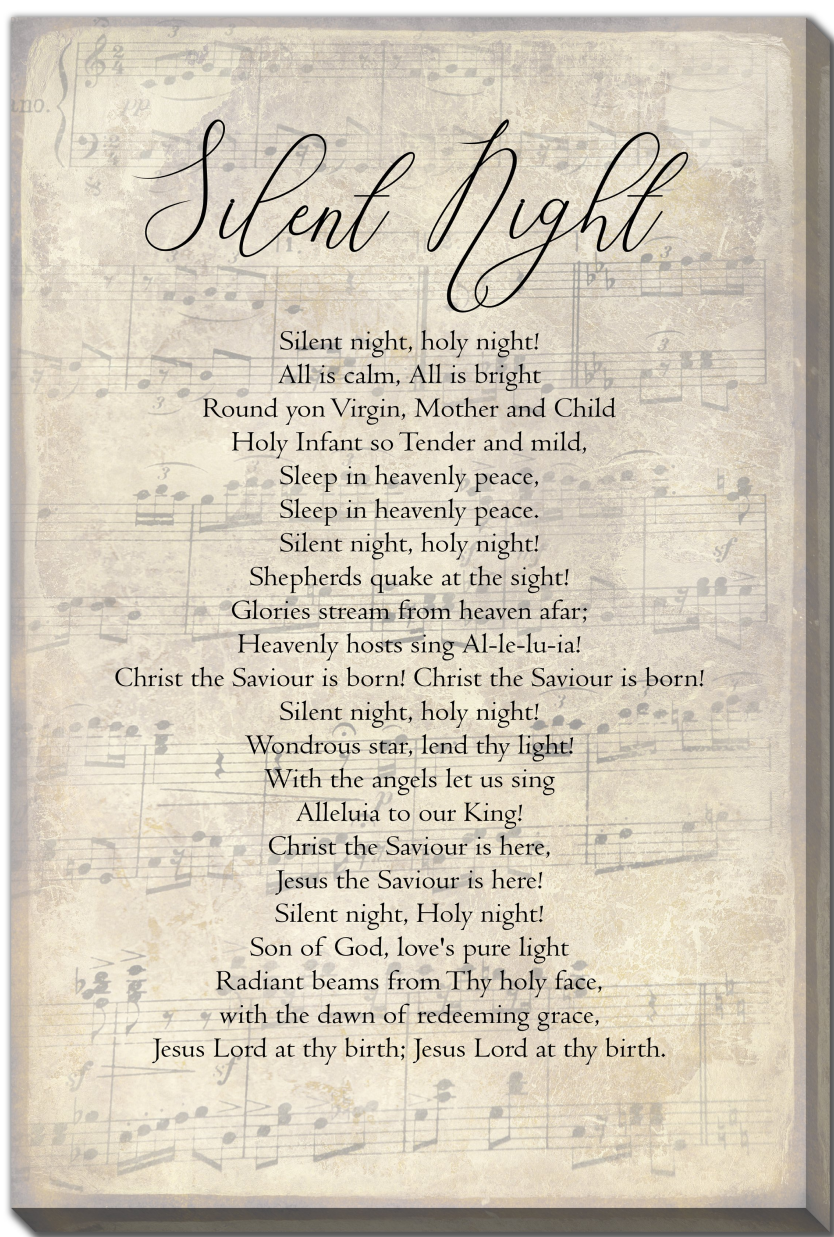 ino.
pp
Silent Night
Silent night, holy night!
All is calm, All is bright
Round yon Virgin, Mother and Child
Holy Infant so Tender and mild,
Sleep in heavenly peace,
Sleep in heavenly peace.
Silent night, holy night!
Shepherds quake at the sight!
Glories stream from heaven afar;
Heavenly hosts sing Al-le-lu-ia!
Christ the Saviour is born! Christ the Saviour is born!
Silent night, holy night!
Wondrous star, lend thy light!
With the angels let us sing
Alleluia to our King!
Christ the Saviour is here,
Jesus the Saviour is here!
Silent night, Holy night!
Son of God, love's pure light
Radiant beams from Thy holy face,
with the dawn of redeeming grace,
Jesus Lord at thy birth; Jesus Lord at thy birth.